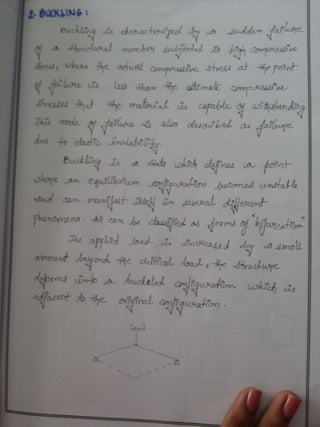 2. BUCKLING:
Buckling is characterized by a sudden failure
of a structural member subjected to high compressive
stress, where the actual compressive stress at the point
of failure is less than the ultimate compressive
stresses that the material is capable of withstanding.
This mode of failure is also described as failure
due to elastic instability.
Buckling is a state which defines a point
where an equilibrium configuration becomes unstable
and can manifest itself in several different
phenomena. All can be classified as forms of "bifurcation"
The applied load is increased by a small
amount beyond the critical load, the structure
deforms into a buckled configuration which is
adjacent to the original configuration.
Load